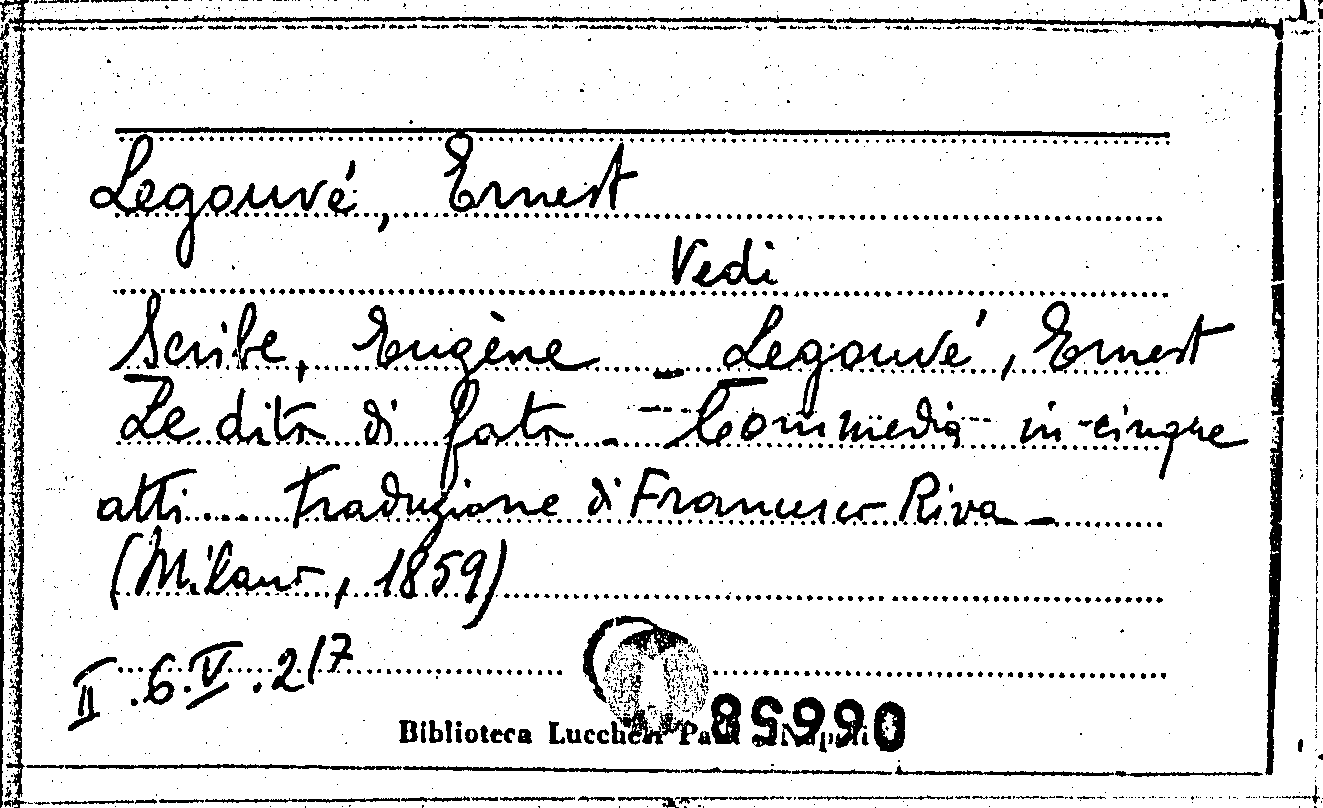 Legouvé, Ernest
Vedi
Scribe, Eugène - Legouvé, Ernest
Le dita di fata - Commedia in cinque
atti... traduzione di Francesco Riva -
(Milano, 1859)
II.6.V.2/7
Biblioteca Lucchesi Palli - Napoli
06658